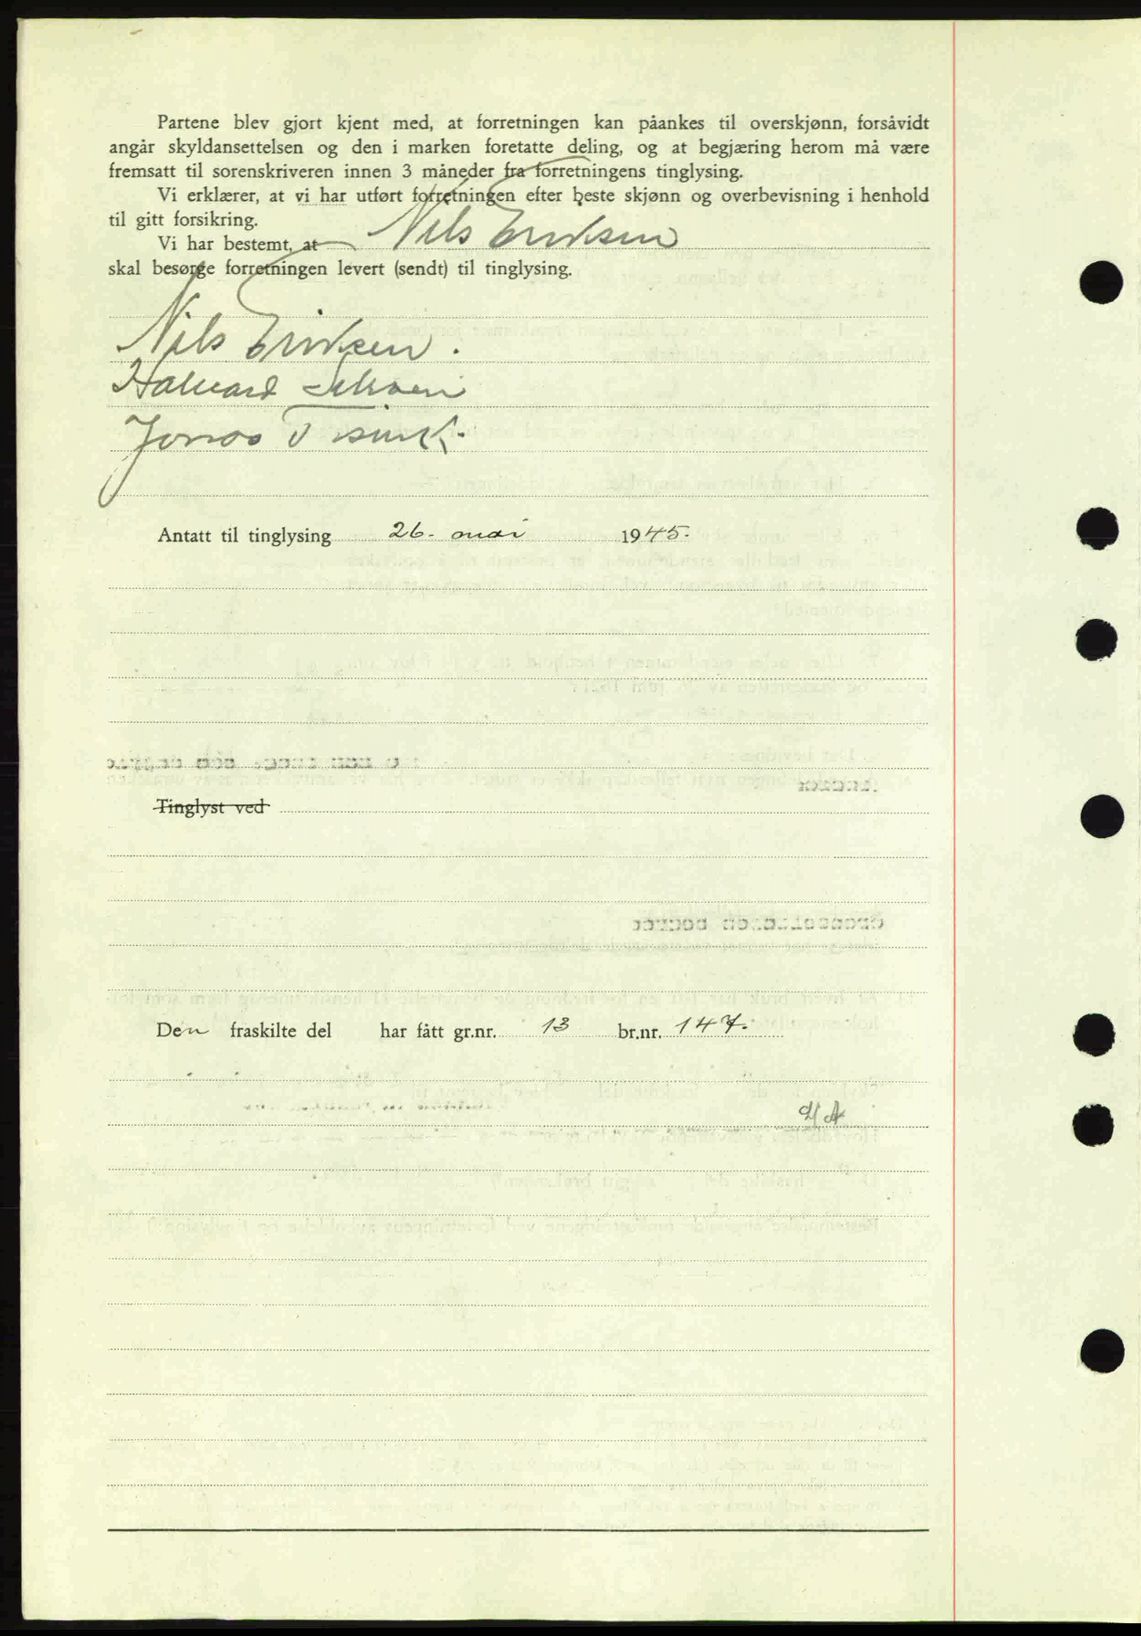 Partene blev gjort kjent med, at forretningen kan påankes til overskjønn, forsåvidt
angår skyldansettelsen og den i marken foretatte deling, og at begjæring herom må være
fremsatt til sorenskriveren innen 3 måneder fra forretningens tinglysing.
Vi erklærer, at vi har utført forretningen efter beste skjønn og overbevisning i henhold
til gitt forsikring.
Vi har bestemt, at Nils Eriksen
skal besørge forretningen levert (sendt) til tinglysing.
Nils Eriksen.
Halvard
Jonas
Antatt til tinglysing 26. mai 1945.
Tinglyst ved
Den fraskilte del har fått gr.nr. 13 br.nr. 147.